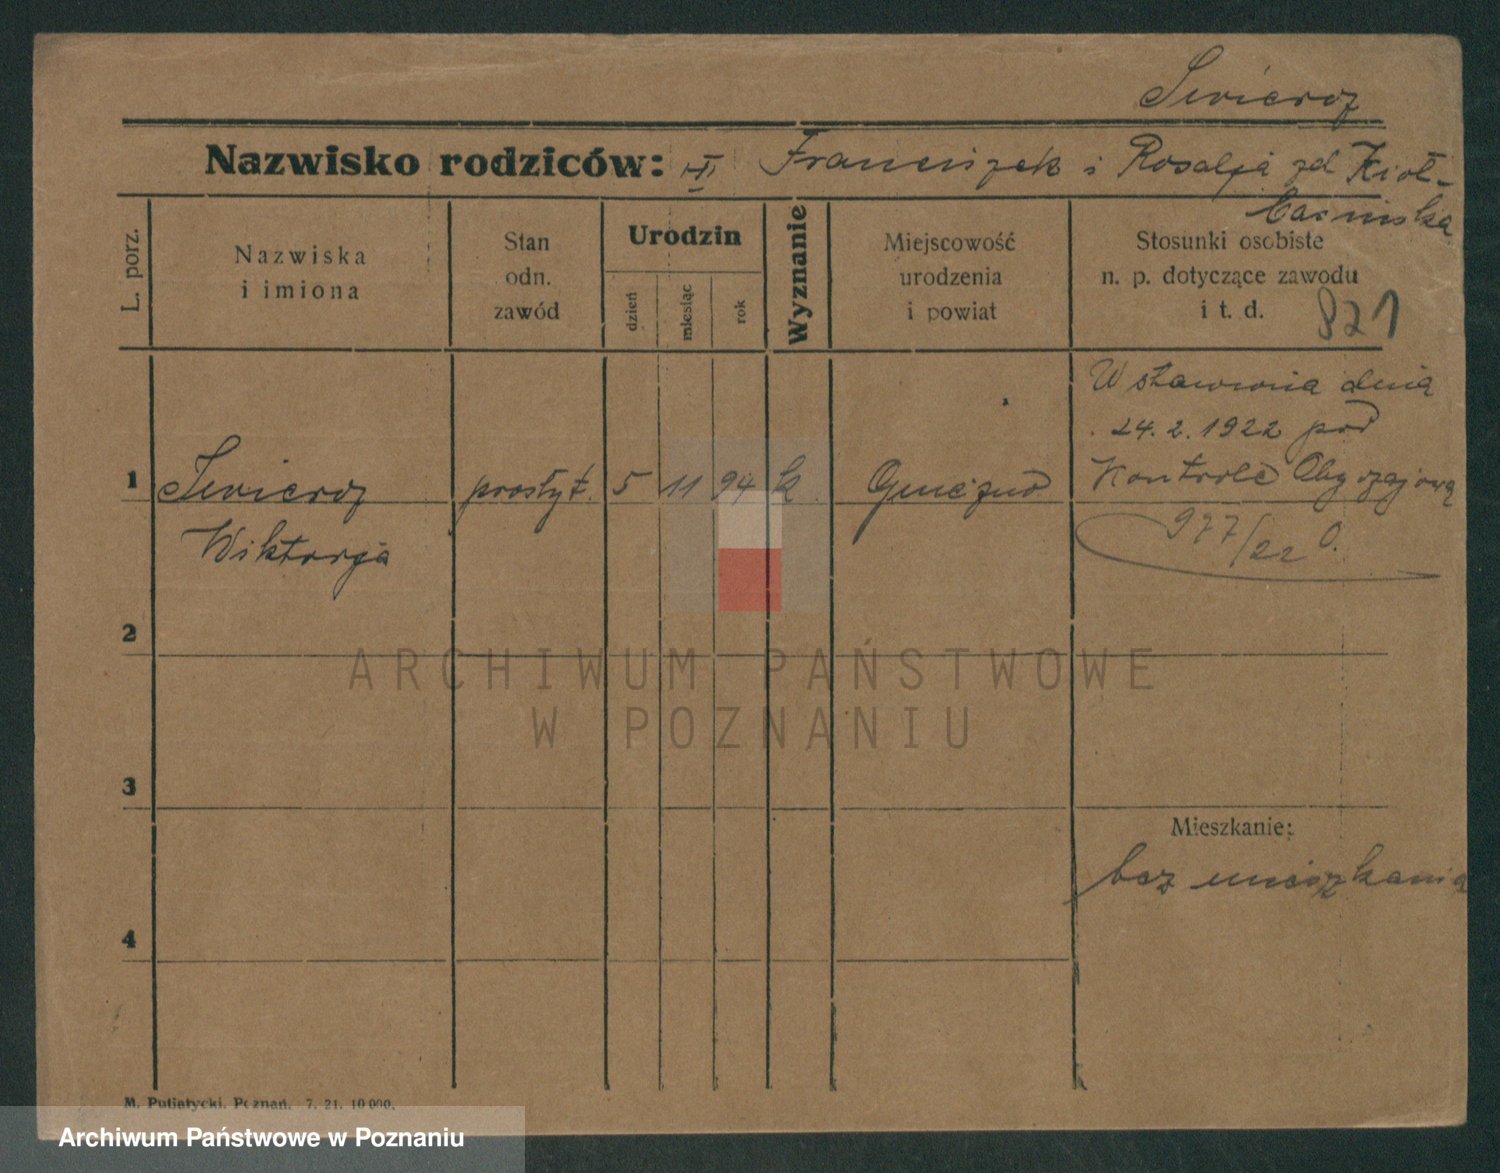 Swiercz
Nazwisko rodziców: Franciszek i Rosalja zd Kioł-
basinska
L. porz.
Nazwiska
i imiona
Stan
odn.
zawód
Urodzin
dzień
miesiąc
rok
Wyznanie
Miejscowość
urodzenia
i powiat
Stosunki osobiste
n. p. dotyczące zawodu
i t. d.
821
Wstawiona dnia
24.2.1922 pod
Kontrole Obyczajową
977/22 O.
1 Swiercz prostyt. 5 11 94 k Gniezno
Wiktorja
2
3
4
Mieszkanie:
bez mieszkania
ARCHIWUM PAŃSTWOWE
W POZNANIU
M. Putiatycki. Poznań. 7. 21. 10 000.
Archiwum Państwowe w Poznaniu